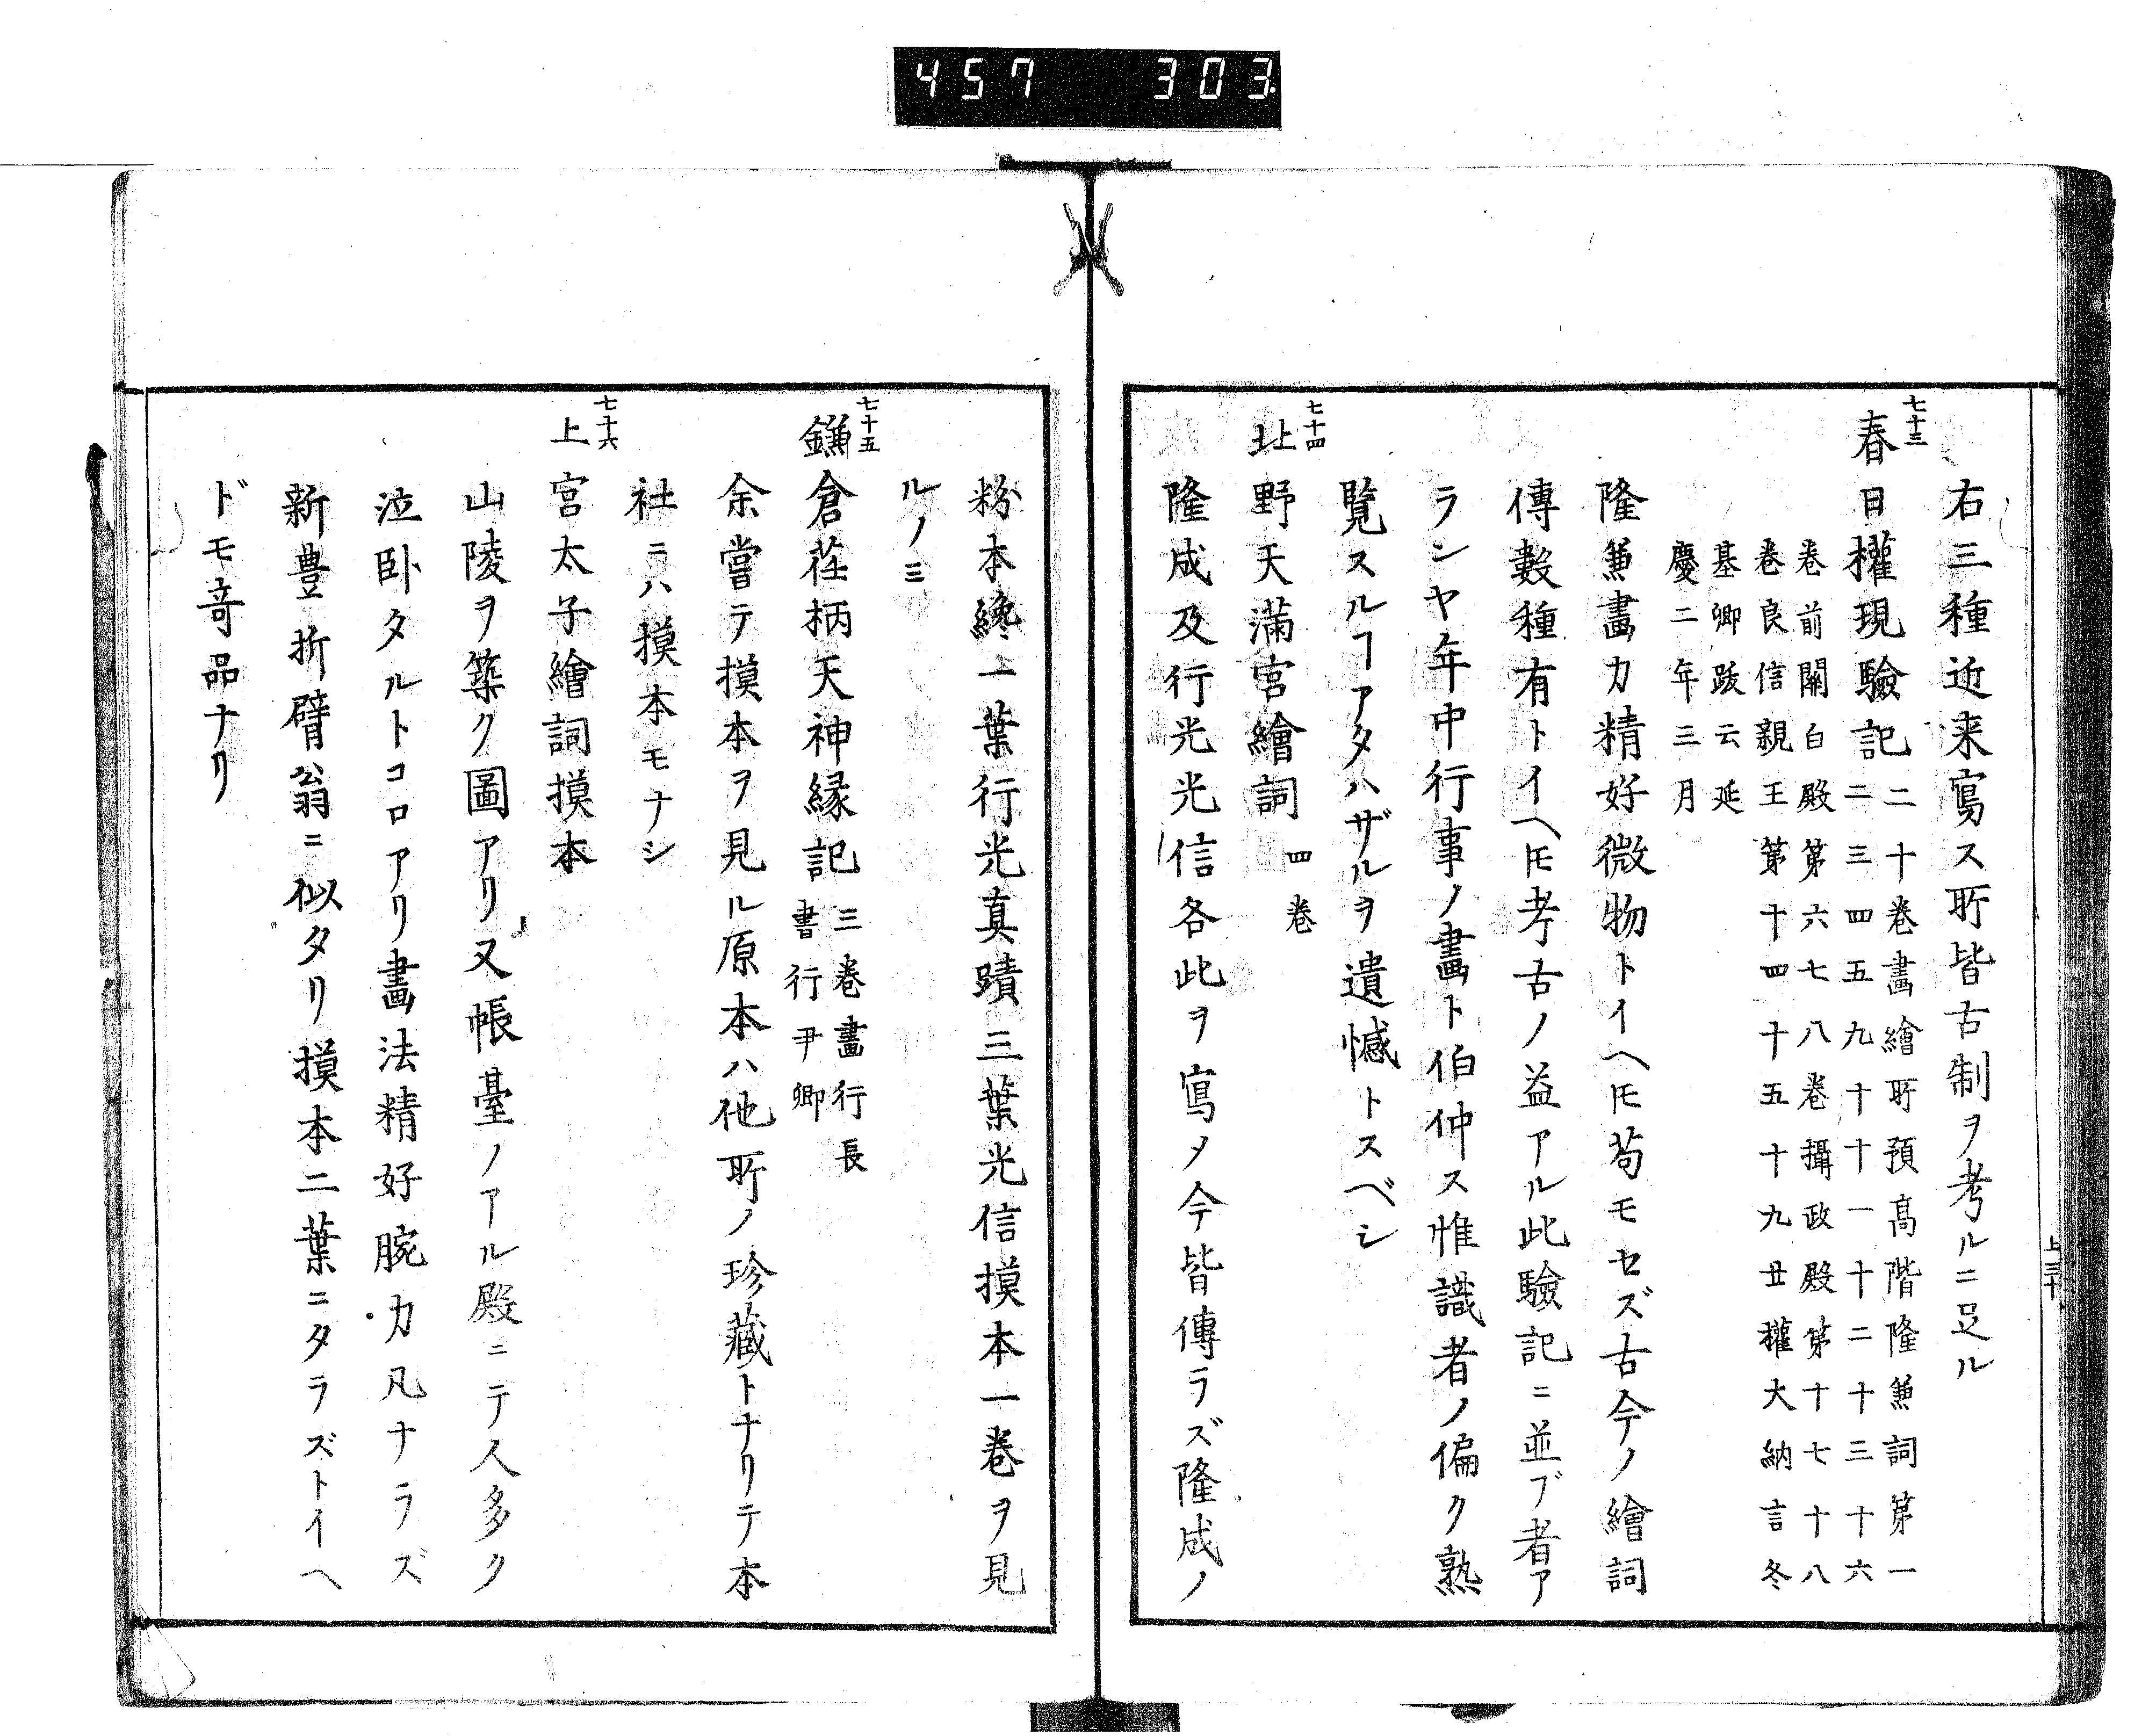 457 303
右三種近来寫ス所皆古制ヲ考ルニ足ル
七十三
春日權現驗記
二十卷畫繪所預髙階隆兼詞第一
二三四五九十十一十二十三十六
卷前關白殿第六七八卷攝政殿第十七十八
卷良信親王第十四十五十九廿權大納言冬
基卿跋云延
慶二年三月
隆兼畫力精好微物トイヘ𪜈苟モセズ古今ノ繪詞
傳數種有トイヘ𪜈考古ノ益アル此驗記ニ並ブ者ア
ランヤ年中行事ノ畫ト伯仲ス惟識者ノ偏ク熟
覧スルヿアタハザルヲ遺憾トスベシ
七十四
北野天滿宮繪詞 四卷
隆成及行光光信各此ヲ寫メ今皆傳ラズ隆成ノ
上三十
粉本纔一葉行光真蹟三葉光信摸本一卷ヲ見
ルノミ
七十五
鎌倉荏柄天神縁記
三卷畫行長
書行尹卿
余嘗テ摸本ヲ見ル原本ハ他所ノ珍藏トナリテ本
社ニハ摸本モナシ
七十六
上宮太子繪詞摸本
山陵ヲ築ク圖アリ又帳臺ノアル殿ニテ人多ク
泣卧タルトコロアリ畫法精好腕力凡ナラズ
新豊折臂翁ニ似タリ摸本二葉ニタラズトイヘ
ドモ竒品ナリ